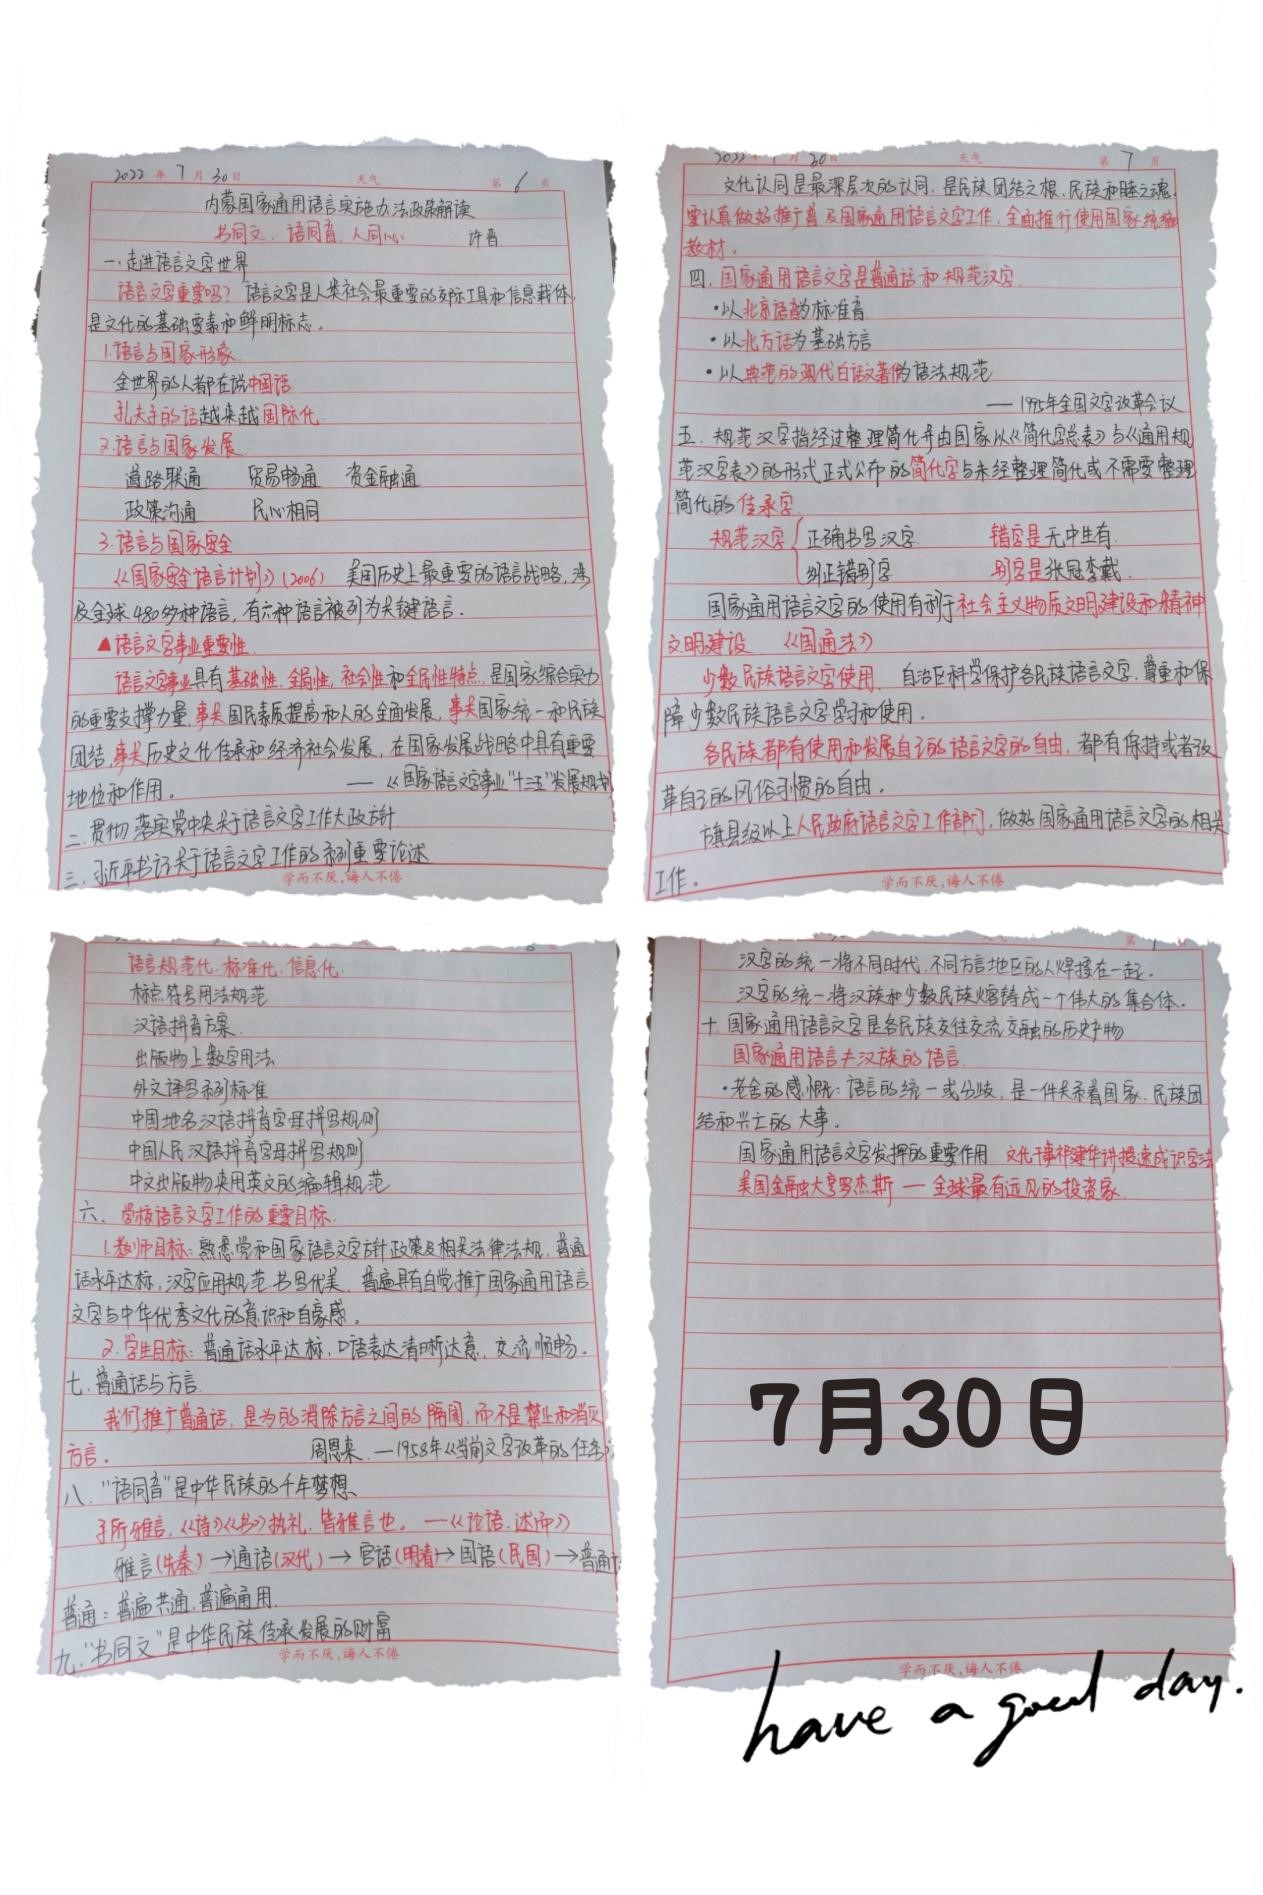 2022年 7月30日 天气 第6页
内蒙国家通用语言实施办法政策解读
书同文、语同音、人同心 许晋
一、走进语言文字世界
语言文字重要吗？语言文字是人类社会最重要的交际工具和信息载体，
是文化的基础要素和鲜明标志。
1.语言与国家形象
全世界的人都在说中国话
孔夫子的话越来越国际化
2.语言与国家发展
道路联通 贸易畅通 资金融通
政策沟通 民心相同
3.语言与国家安全
《国家安全语言计划》(2006) 美国历史上最重要的语言战略，涉
及全球480多种语言，有六种语言被列为关键语言。
▲语言文字事业重要性
语言文字事业具有基础性、全局性、社会性和全民性特点，是国家综合实力
的重要支撑力量，事关国民素质提高和人的全面发展，事关国家统一和民族
团结，事关历史文化传承和经济社会发展，在国家发展战略中具有重要
地位和作用。 ——《国家语言文字事业"十三五"发展规划
二、贯彻落实党中央关于语言文字工作大政方针
三、习近平书记关于语言文字工作的系列重要论述
学而不厌，诲人不倦
2022年 7月30日 天气 第7页
文化认同是最深层次的认同，是民族团结之根、民族和睦之魂。
要认真做好推广普及国家通用语言文字工作，全面推行使用国家统编
教材。
四、国家通用语言文字是普通话和规范汉字
·以北京语音为标准音
·以北方话为基础方言
·以典范的现代白话文著作的语法规范
——1955年全国文字改革会议
五、规范汉字指经过整理简化并由国家以《简化字总表》与《通用规
范汉字表》的形式正式公布的简化字与未经整理简化或不需要整理
简化的传承字
规范汉字{正确书写汉字 错字是无中生有
纠正错别字 别字是张冠李戴
国家通用语言文字的使用有利于社会主义物质文明建设和精神
文明建设 《国通法》
少数民族语言文字使用 自治区科学保护各民族语言文字，尊重和保
障少数民族语言文字学习和使用。
各民族都有使用和发展自己的语言文字的自由，都有保持或者改
革自己的风俗习惯的自由。
旗县级以上人民政府语言文字工作部门，做好国家通用语言文字的相关
工作。
学而不厌，诲人不倦
语言规范化、标准化、信息化
标点符号用法规范
汉语拼音方案
出版物上数字用法
外文译写系列标准
中国地名汉语拼音字母拼写规则
中国人民汉语拼音字母拼写规则
中文出版物夹用英文的编辑规范
六、学校语言文字工作的重要目标
1.教师目标：熟悉党和国家语言文字方针政策及相关法律法规，普通
话水平达标，汉字应用规范、书写优美，普遍具有自觉推广国家通用语言
文字与中华优秀文化的意识和自豪感。
2.学生目标：普通话水平达标，口语表达清晰达意，交流顺畅。
七、普通话与方言
我们推广普通话，是为的消除方言之间的隔阂，而不是禁止和消灭
方言。 周恩来 —1958年《当前文字改革的任务》
八、"语同音"是中华民族的千年梦想
子所雅言，《诗》《书》执礼，皆雅言也。——《论语·述而》
雅言(先秦)→通语(汉代)→官话(明清)→国语(民国)→普通
普通：普遍共通、普遍通用
九、"书同文"是中华民族传承发展的财富
学而不厌，诲人不倦
天气 第
汉字的统一将不同时代、不同方言地区的人焊接在一起。
汉字的统一将汉族和少数民族熔铸成一个伟大的集合体。
十、国家通用语言文字是各民族交往交流交融的历史产物
国家通用语言≠汉族的语言
·老舍的感慨：语言的统一或分歧，是一件关系着国家、民族团
结和兴亡的大事。
国家通用语言文字发挥的重要作用 文化干事祁建华讲授速成识字法
美国金融大亨罗杰斯——全球最有远见的投资家
7月30日
学而不厌，诲人不倦
have a good day.